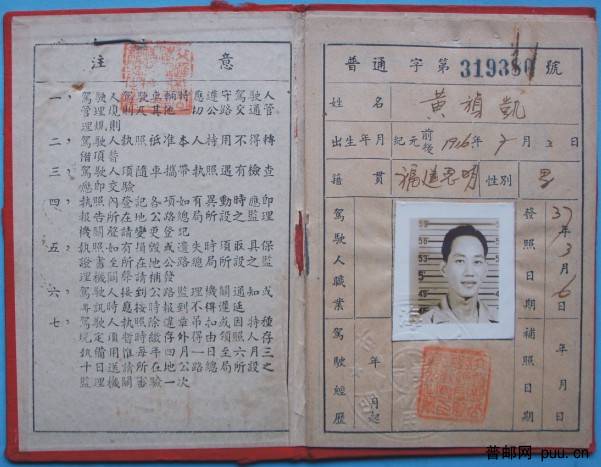 注意
一，駕駛人駕駛車輛時應遵守駕駛人
管理規則及其他一切公路交通管
理規則
二，駕駛人執照祇准本人持用不得轉
借頂替
三，駕駛人須隨車攜帶執照遇有檢查
應即交驗
四，執照內登記各項如有異動時應即
報告所在地公路總局所設之監理
機關聲請變更登記
五，執照如有損毀或遺失時須取具保
證書至所在地公路總局所設之監
理機關聲請補發
六，駕駛人接到公路監理機關通知或
傳訊時應按時報到不得遲延
七，駕駛人執照除違章吊扣或因特種
規定須暫時繳存外得由領照人存
執備用惟每年四月一日至六月三
十日送請所在地公路總局所設之
監理機關審驗一次
普通字第319380號
姓名 黃禎凱
出生年月 紀元前後1916年 月 日
籍貫 福建思明 性別 男
駕駛人職業
發照日期 37年3月6日
駕駛經歷 年 月起
補照日期 年 月 日
普邮网 puu.cn